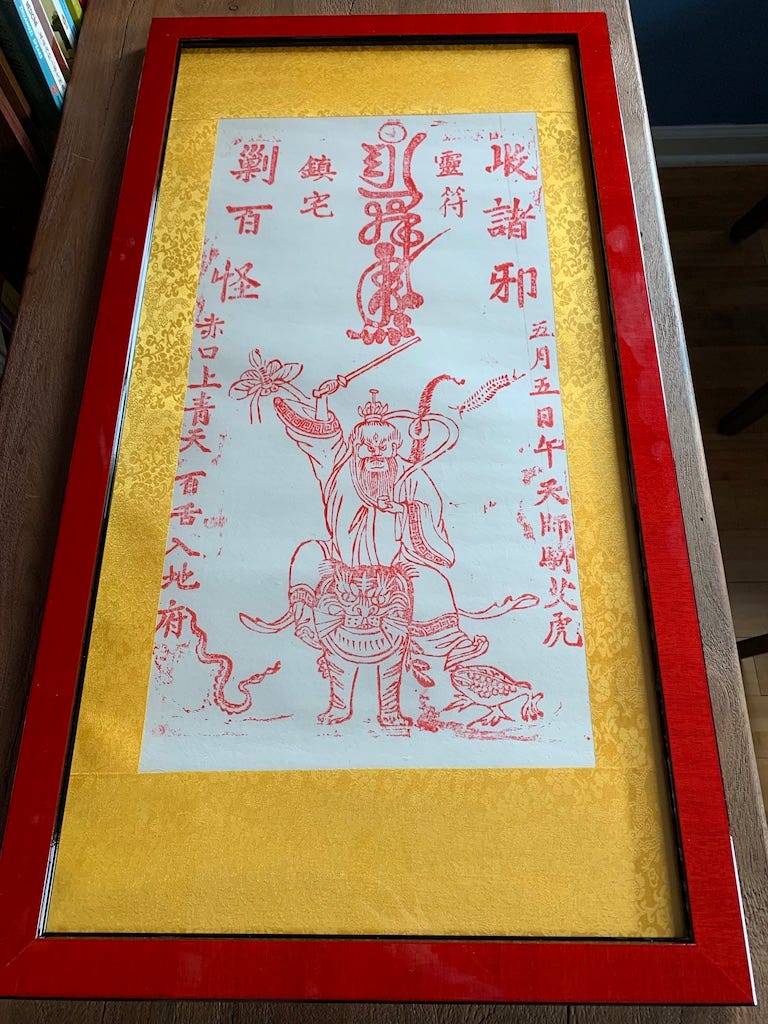 收諸邪
五月五日午天師騎艾虎
靈符
鎮宅
剿百怪
赤口上青天 百舌入地府